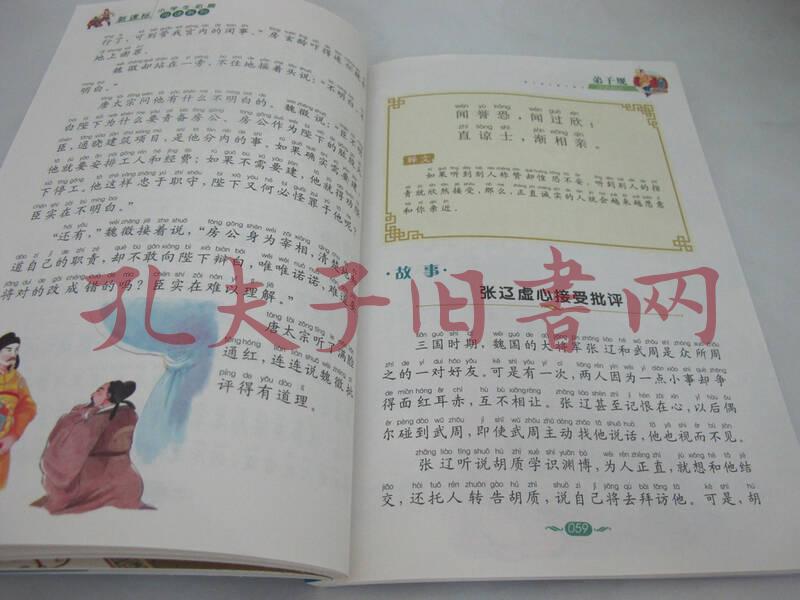 新课标 小学生必背
行了，可别管我宫内的闲事。"房玄龄吓得连
地上谢罪。
魏徵却站在一旁，不住地摇着头说："不明
明白。"
唐太宗问他有什么不明白的。魏徵说："臣不
白陛下为什么要责备房公。房公作为陛下的肱股大
臣，通晓建筑项目，是他分内的事。如果确实需要建，
他就要安排工人和经费；如果不需要建，他就得功陛
下停工。他这样忠于职守，陛下又何必怪罪于他呢？
臣实在不明白。"
"还有，"魏徵接着说，"房公身为宰相，清楚地知
道自己的职责，却不敢向陛下辩白，唯唯诺诺，难道要
将对的改成错的吗？臣实在难以理解。"
唐太宗听了满脸
通红，连连说魏徵批
评得有道理。
弟子规
wén yù kǒng wén guò xīn
闻誉恐，闻过欣；
zhí liàng shì jiàn xiāng qīn
直谅士，渐相亲。
释文
如果听到别人称赞却惶恐不安，听到别人的指
责就欣然接受，那么，正直诚实的人就会越来越愿意
和你亲近。
·故事·
张辽虚心接受批评
三国时期，魏国的大将军张辽和武周是众所周
之的一对好友。可是有一次，两人因为一点小事却争
得面红耳赤，互不相让。张辽甚至记恨在心，以后偶
尔碰到武周，即使武周主动找他说话，他也视而不见。
张辽听说胡质学识渊博，为人正直，就想和他结
交，还托人转告胡质，说自己将去拜访他。可是，胡
059
孔夫子旧书网